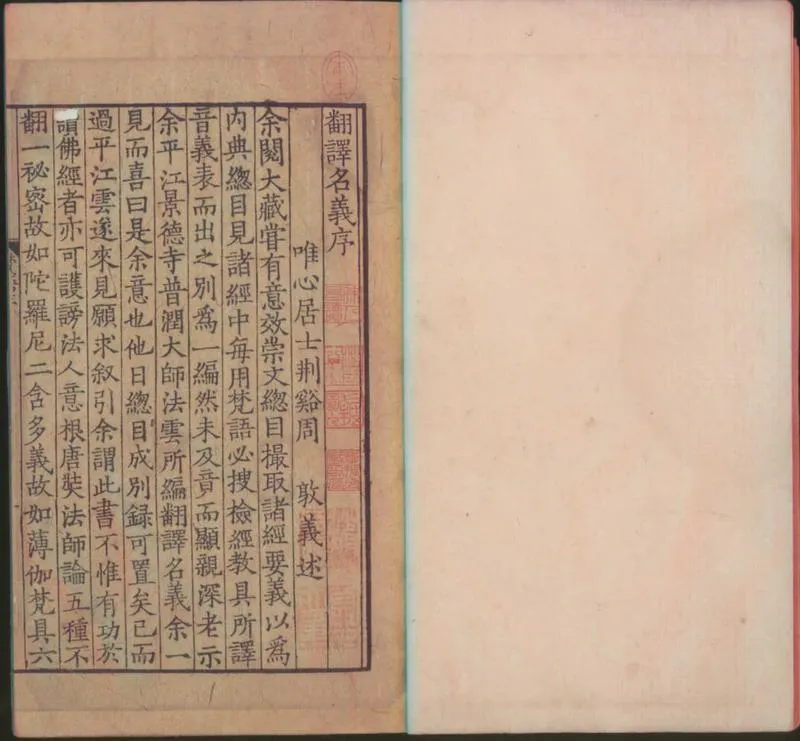 翻譯名義序
唯心居士荆谿周 敦義述
余閱大藏甞有意效崇文總目撮取諸經要義以為
内典總目見諸經中每用梵語必搜檢經教具所譯
音義表而出之别為一編然未及竟而顯親深老示
余平江景德寺普潤大師法雲所編翻譯名義余一
見而喜曰是余意也他日總目成别録可置矣已而
過平江雲遂來見願求叙引余謂此書不惟有功於
讀佛經者亦可護謗法人意根唐奘法師論五種不
翻一祕密故如陀羅尼二含多義故如薄伽梵具六